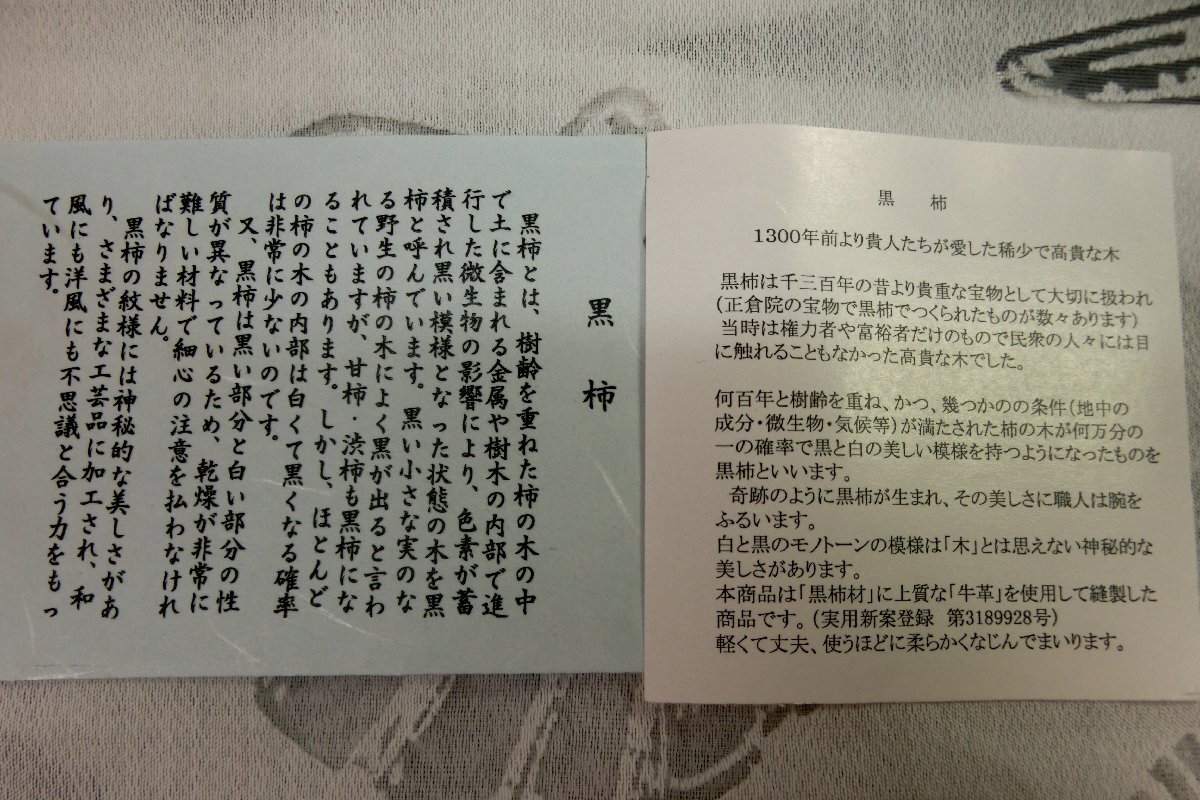 黒柿
黒柿とは、樹齢を重ねた柿の木の中
で土に含まれる金属や樹木の内部で進
行した微生物の影響により、色素が蓄
積され黒い模様となった状態の木を黒
柿と呼んでいます。黒い小さな実のな
る野生の柿の木によく黒が出ると言わ
れていますが、甘柿・渋柿も黒柿にな
ることもあります。しかし、ほとんど
の柿の木の内部は白くて黒くなる確率
は非常に少ないのです。
又、黒柿は黒い部分と白い部分の性
質が異なっているため、乾燥が非常に
難しい材料で細心の注意を払わなけれ
ばなりません。
黒柿の紋様には神秘的な美しさがあ
り、さまざまな工芸品に加工され、和
風にも洋風にも不思議と合う力をもっ
ています。
黒 柿
1300年前より貴人たちが愛した稀少で高貴な木
黒柿は千三百年の昔より貴重な宝物として大切に扱われ
(正倉院の宝物で黒柿でつくられたものが数々あります)
当時は権力者や富裕者だけのもので民衆の人々には目
に触れることもなかった高貴な木でした。
何百年と樹齢を重ね、かつ、幾つかのの条件(地中の
成分・微生物・気候等)が満たされた柿の木が何万分の
一の確率で黒と白の美しい模様を持つようになったものを
黒柿といいます。
奇跡のように黒柿が生まれ、その美しさに職人は腕を
ふるいます。
白と黒のモノトーンの模様は「木」とは思えない神秘的な
美しさがあります。
本商品は「黒柿材」に上質な「牛革」を使用して縫製した
商品です。(実用新案登録 第3189928号)
軽くて丈夫、使うほどに柔らかくなじんでまいります。